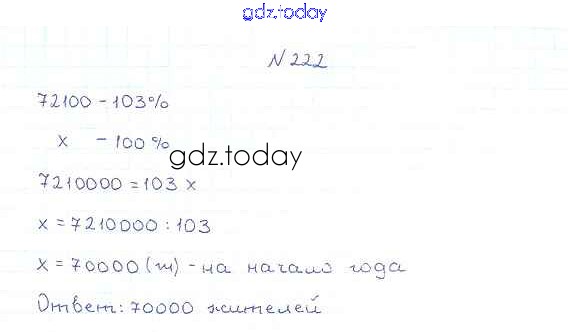 gdz.today
№222
72100 - 103%
x - 100%
gdz.today
7210000 = 103 x
x = 7210000 : 103
x = 70000 (ж) - на начало года
Ответ: 70000 жителей